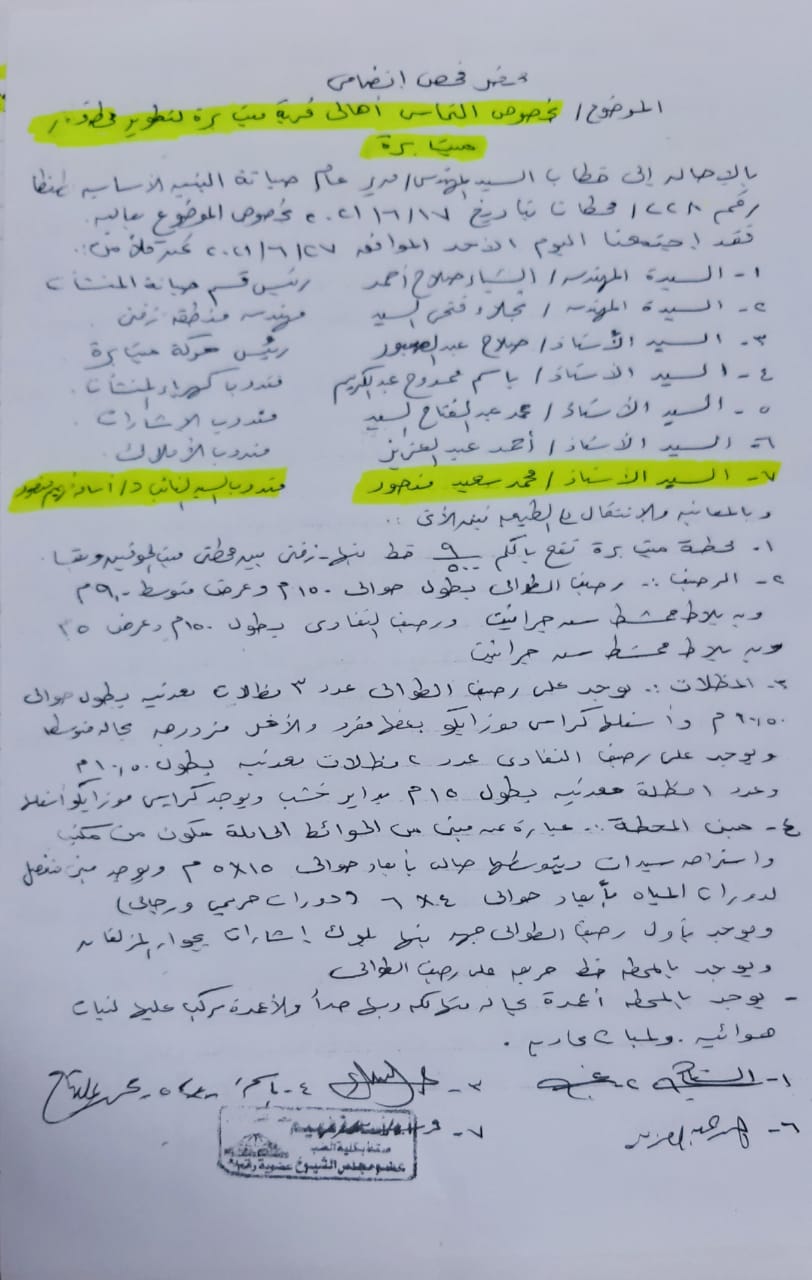 محضر فحص انضمامى
الموضوع/ بخصوص التماس أهالى قرية ميت برة لتطوير محطة
ميت برة
بالإحالة إلى خطاب السيد المهندس/ مدير عام صيانة البنية الأساسية طنطا
رقم ٢٢٨/ محطات بتاريخ ٢٠٢١/٦/١٧ بخصوص الموضوع بعاليه
فقد اجتمعنا اليوم الأحد الموافق ٢٠٢١/٦/٢٧ نحن كلا من:
١- السيدة المهندسة/ الشيماء صلاح أحمد رئيس قسم صيانة المنشآت
٢- السيدة المهندسة/ نجلاء فتحى السيد مهندسة منطقة زفتى
٣- السيد الأستاذ/ صلاح عبد الصبور رئيس حركة ميت برة
٤- السيد الأستاذ/ باسم ممدوح عبد الكريم مندوب كهرباء المنشآت
٥- السيد الأستاذ/ محمد عبد الفتاح السيد مندوب الإشارات
٦- السيد الأستاذ/ أحمد عبد العزيز مندوب الأملاك
٧- السيد الأستاذ/ محمد سعيد منصور مندوب السيد النائب د/ أسامة فهيم منصور
وبالمعاينة والانتقال على الطبيعة تبين الآتى:
١- محطة ميت برة تقع بالكم ٩/٥٠٠ خط بنها - زفتى بين محطتى
٢- الرصيف: رصيف الطوالى بطول حوالى ١٥٠م وعرض متوسط م
وبه بلاط ممشط سن جرانيت ورصيف التفادى بطول ١٥٠م وعرض ٣٥
وبه بلاط ممشط سن جرانيت
٣- المظلات: يوجد على رصيف الطوالى عدد ٣ مظلات معدنية بطول حوالى
م وأسفلها كراسى موزايكو بعضها مفرد والآخر مزدوجة بحالة متوسطة
ويوجد على رصيف التفادى عدد ٢ مظلات معدنية بطول م
وعدد ١ مظلة معدنية بطول ١٥م بداير خشب ويوجد كراسى موزايكو أسفلها
٤- مبنى المحطة: عبارة عن مبنى من الحوائط الحاملة مكون من مكتب
واستراحة سيدات ويتوسطها صالة بأبعاد حوالى ١٥×٥ م ويوجد مبنى منفصل
لدورات المياه بأبعاد حوالى ٤×٦ (دورات حريمى ورجالى)
ويوجد بأول رصيف الطوالى جهة بنها بلوك إشارات بجوار المزلقان
ويوجد بالمحطة خط حريق على رصيف الطوالى
- يوجد بالمحطة أعمدة بحالة متهالكة جداً والأعمدة مركب عليها
هوائية ولمبات عادية.
١- الشيماء ٢- ٣- ٤- باسم ٥- محمد عبد الفتاح
٦- أحمد عبد العزيز ٧-
بكلية الطب
عضو مجلس الشيوخ عضوية رقم